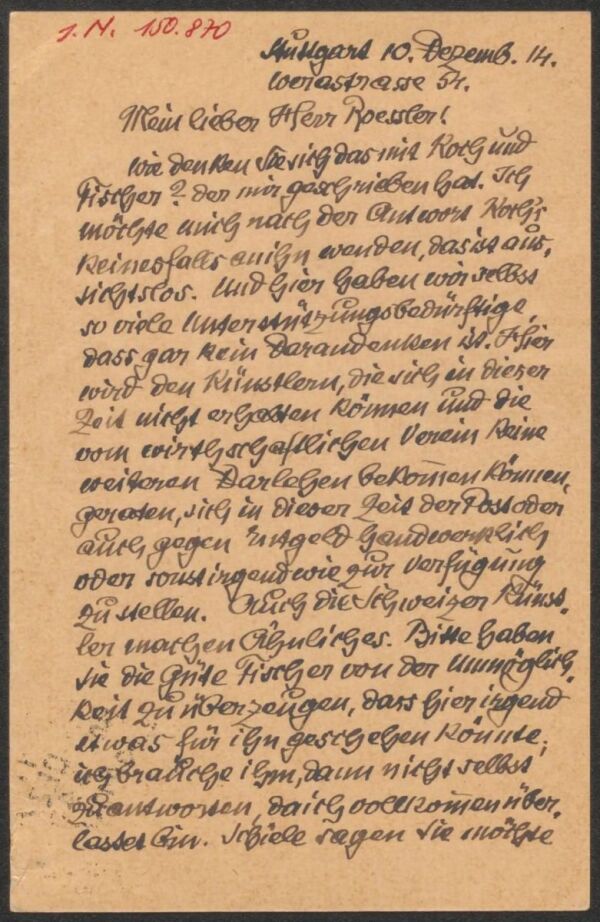 J. N. 150.870
Stuttgart 10. Dezemb. 14.
Werastrasse 54.
Mein lieber Herr Roessler!
wie denken Sie sich das mit Koch und
Fischer? der mir geschrieben hat. Ich
möchte mich nach der Antwort Koch's
keinesfalls an ihn wenden, das ist aus-
sichtslos. Und hier haben wir selbst
so viele Unterstützungsbedürftige,
dass gar kein Darandenken ist. Hier
wird den Künstlern, die sich in dieser
Zeit nicht erhalten können und die
vom wirthschaftlichen Verein keine
weiteren Darlehen bekomen können,
geraten, sich in dieser Zeit der Post oder
auch gegen Entgeld handwerklich
oder sonst irgendwie zur Verfügung
zu stellen. Auch die Schweizer Künst-
ler machen Ähnliches. Bitte haben
Sie die Güte Fischer von der Unmöglich-
keit zu überzeugen, dass hier irgend
etwas für ihn geschehen könnte;
ich brauche ihm, dann nicht selbst
zu antworten, da ich vollkomen über-
lastet bin. Schiele sagen Sie möchte